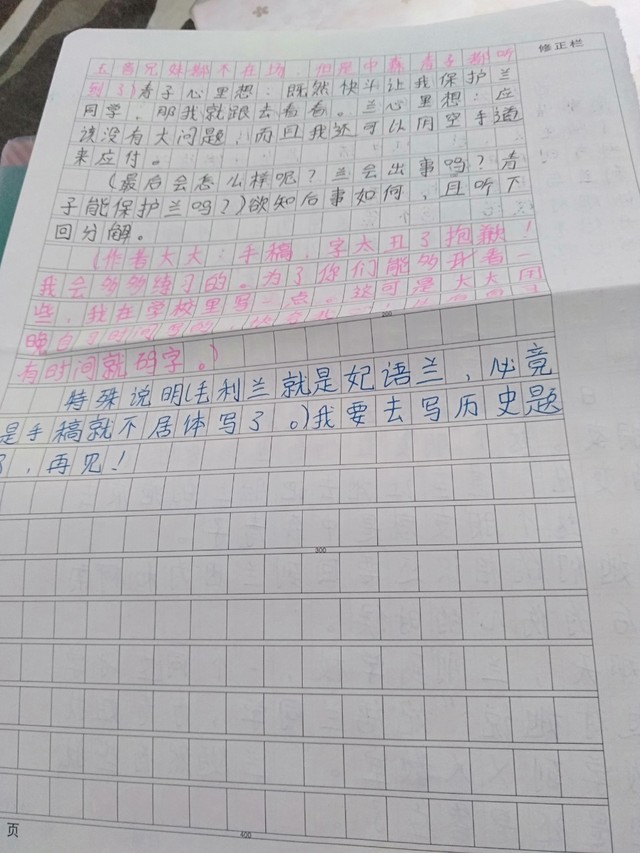 修正栏
五音兄妹都不在场，但是中森青子都听
到了)青子心里想：既然快斗让我保护兰
同学，那我就跟去看看。兰心里想：应
该没有大问题，而且我还可以用空手道
来应付。
(最后会怎么样呢？兰会出事吗？青
子能保护兰吗？)欲知后事如何，且听下
回分解。
(作者大大：手稿，字太丑了抱歉！
我会多多练习的。为了你们能够开看一
些，我在学校里写一点。这可是大大用
晚自习时间写的
200
有时间就码字。)
特殊说明(毛利兰就是妃语兰，必竟
是手稿就不居体写了。)我要去写历史题
了，再见！
300
页
400